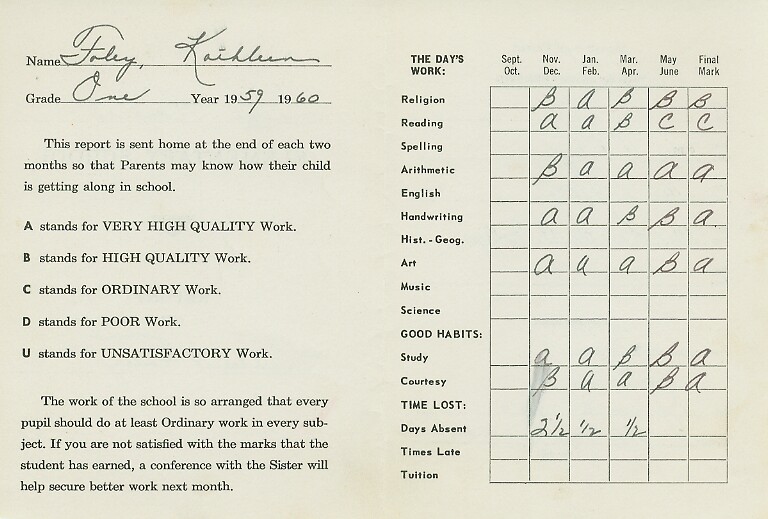 Name Foley, Kathleen
Grade One Year 1959 1960
This report is sent home at the end of each two
months so that Parents may know how their child
is getting along in school.
A stands for VERY HIGH QUALITY Work.
B stands for HIGH QUALITY Work.
C stands for ORDINARY Work.
D stands for POOR Work.
U stands for UNSATISFACTORY Work.
The work of the school is so arranged that every
pupil should do at least Ordinary work in every sub-
ject. If you are not satisfied with the marks that the
student has earned, a conference with the Sister will
help secure better work next month.
THE DAY'S Sept. Nov. Jan. Mar. May Final
WORK: Oct. Dec. Feb. Apr. June Mark
Religion B a B B B
Reading a a B C C
Spelling
Arithmetic B a a a a
English
Handwriting a a B B a.
Hist. - Geog.
Art a a a B a
Music
Science
GOOD HABITS:
Study a a B B a
Courtesy B a a B a
TIME LOST:
Days Absent 2 1/2 1/2 1/2
Times Late
Tuition